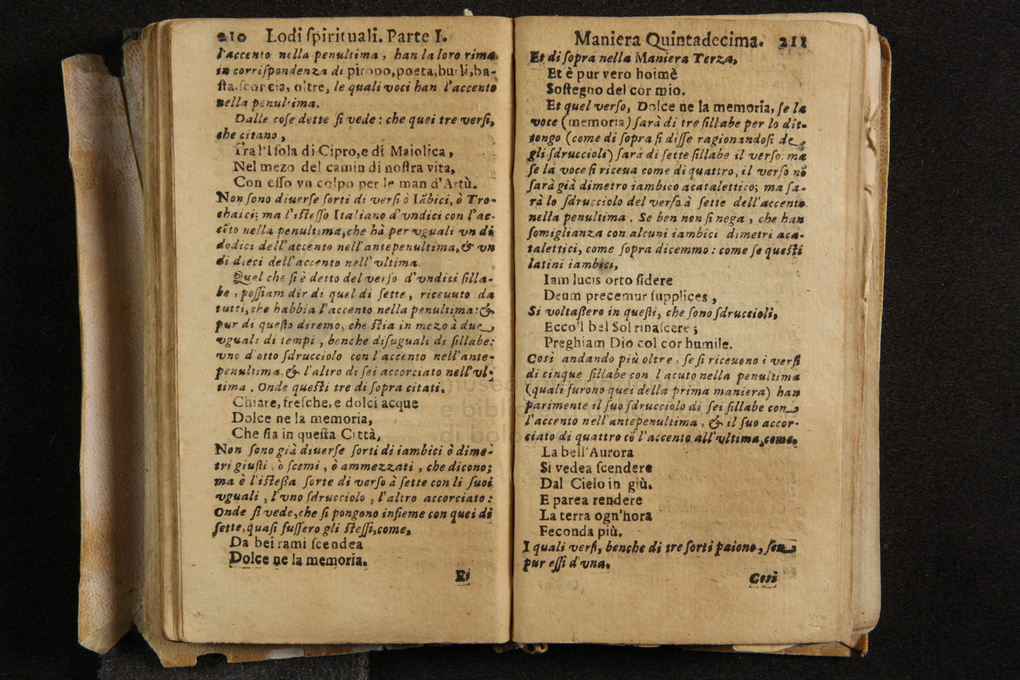 210 Lodi ſpirituali. Parte I.
l'accento nella penultima, han la loro rima
in corriſpondenza di piropo, poeta, burli, ba-
ſta, ſcorcia, oltre, le quali voci han l'accento
nella penultima.
Dalle coſe dette ſi vede: che quei tre verſi,
che citano,
Tra l'Iſola di Cipro, e di Maiolica,
Nel mezo del camin di noſtra vita,
Con eſſo vn colpo per le man d'Artù.
Non ſono diuerſe ſorti di verſi ò Iãbici, ò Tro-
chaici; ma l'iſteſſo Italiano d'vndici con l'ac-
cẽto nella penultima, che hà per vguali vn di
dodici dell'accento nell'antepenultima, & vn
di dieci dell'accento nell'vltima.
Quel che ſi è detto del verſo d'vndici ſilla-
be, poſſiam dir di quel di ſette, riceuuto da
tutti, che habbia l'accento nella penultima: &
pur di queſto diremo, che ſtia in mezo à due
vguali di tempi, benche diſuguali di ſillabe:
vno d'otto ſdrucciolo con l'accento nell'ante-
penultima, & l'altro di ſei accorciato nell'vl-
tima. Onde queſti tre di ſopra citati.
Chiare, freſche, e dolci acque
Dolce ne la memoria,
Che ſia in queſta Città,
Non ſono già diuerſe ſorti di iambici ò dime-
tri giuſti, ò ſcemi, ò ammezzati, che dicono;
ma è l'iſteſſa ſorte di verſo à ſette con li ſuoi
vguali, l'vno ſdrucciolo, l'altro accorciato:
Onde ſi vede, che ſi pongono inſieme con quei di
ſette, quaſi fuſſero gli ſteſſi, come,
Da bei rami ſcendea
Dolce ne la memoria.
Et
Maniera Quintadecima. 211
Et di ſopra nella Maniera Terza,
Et è pur vero hoimè
Soſtegno del cor mio.
Et quel verſo, Dolce ne la memoria, ſe la
voce (memoria) ſarà di tre ſillabe per lo dit-
tongo (come di ſopra ſi diſſe ragionandoſi de
gli ſdruccioli) ſarà di ſette ſillabe il verſo. ma
ſe la voce ſi riceua come di quattro, il verſo nõ
ſarà già dimetro iambico acatalettico; ma ſa-
rà lo ſdrucciolo del verſo à ſette dell'accento
nella penultima. Se ben non ſi nega, che han
ſomiglianza con alcuni iambici dimetri aca-
talettici, come ſopra dicemmo: come ſe queſti
latini iambici,
Iam lucis orto ſidere
Deum precemur ſupplices,
Si voltaſſero in queſti, che ſono ſdruccioli,
Ecco'l bel Sol rinaſcere;
Preghiam Dio col cor humile.
Così andando più oltre, ſe ſi riceuono i verſi
di cinque ſillabe con l'acuto nella penultima
(quali furono quei della prima maniera) han
parimente il ſuo ſdrucciolo di ſei ſillabe con
l'accento nell'antepenultima, & il ſuo accor-
ciato di quattro cõ l'accento all'vltima, come.
La bell'Aurora
Si vedea ſcendere
Dal Cielo in giù.
E parea rendere
La terra ogn'hora
Feconda più.
I quali verſi, benche di tre ſorti paiono, ſon
pur eſſi d'vna.
Così